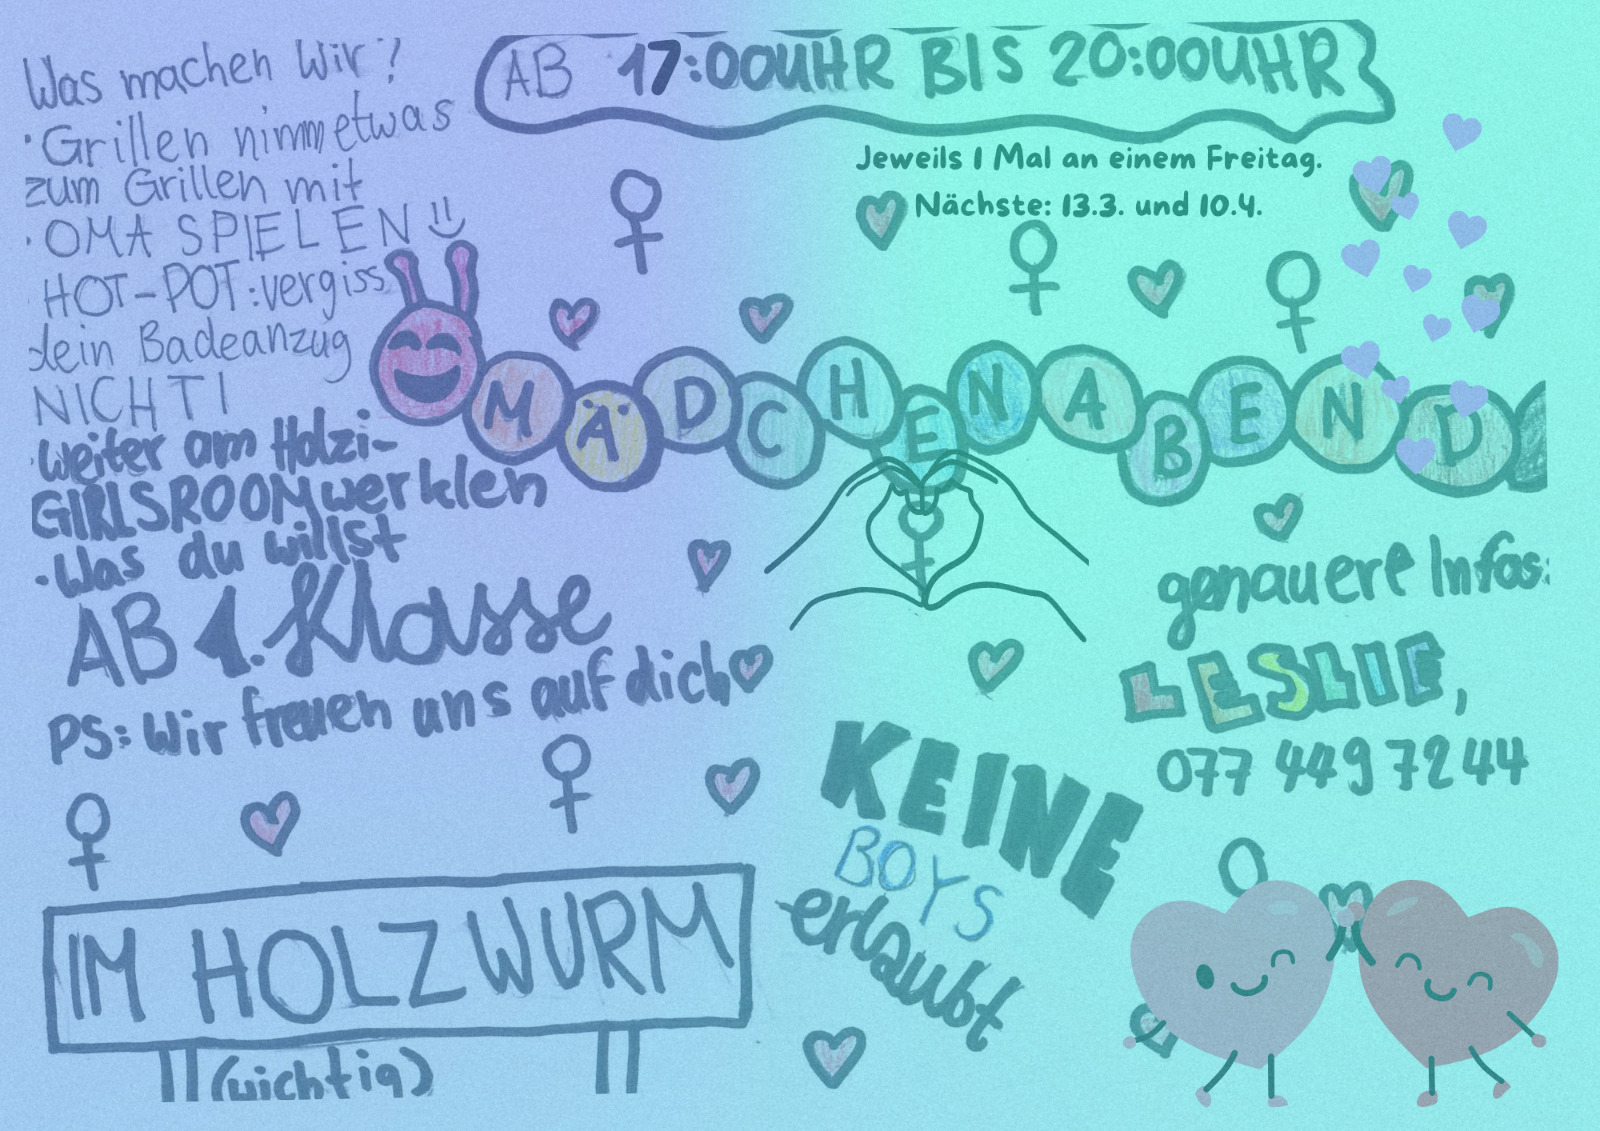 Was machen Wir?
· Grillen nimm etwas
zum Grillen mit
· OMA SPIELEN
HOT-POT: vergiss
dein Badeanzug
NICHT!
· Weiter am Holzi-
GIRLSROOM werklen
· Was du willst
AB 1. Klasse
PS: Wir freuen uns auf dich
IM HOLZWURM
(wichtig)
AB 17:00UHR BIS 20:00UHR
Jeweils 1 Mal an einem Freitag.
Nächste: 13.3. und 10.4.
MÄDCHENABEND
genauere Infos:
LESLIE,
077 449 72 44
KEINE
BOYS
erlaubt